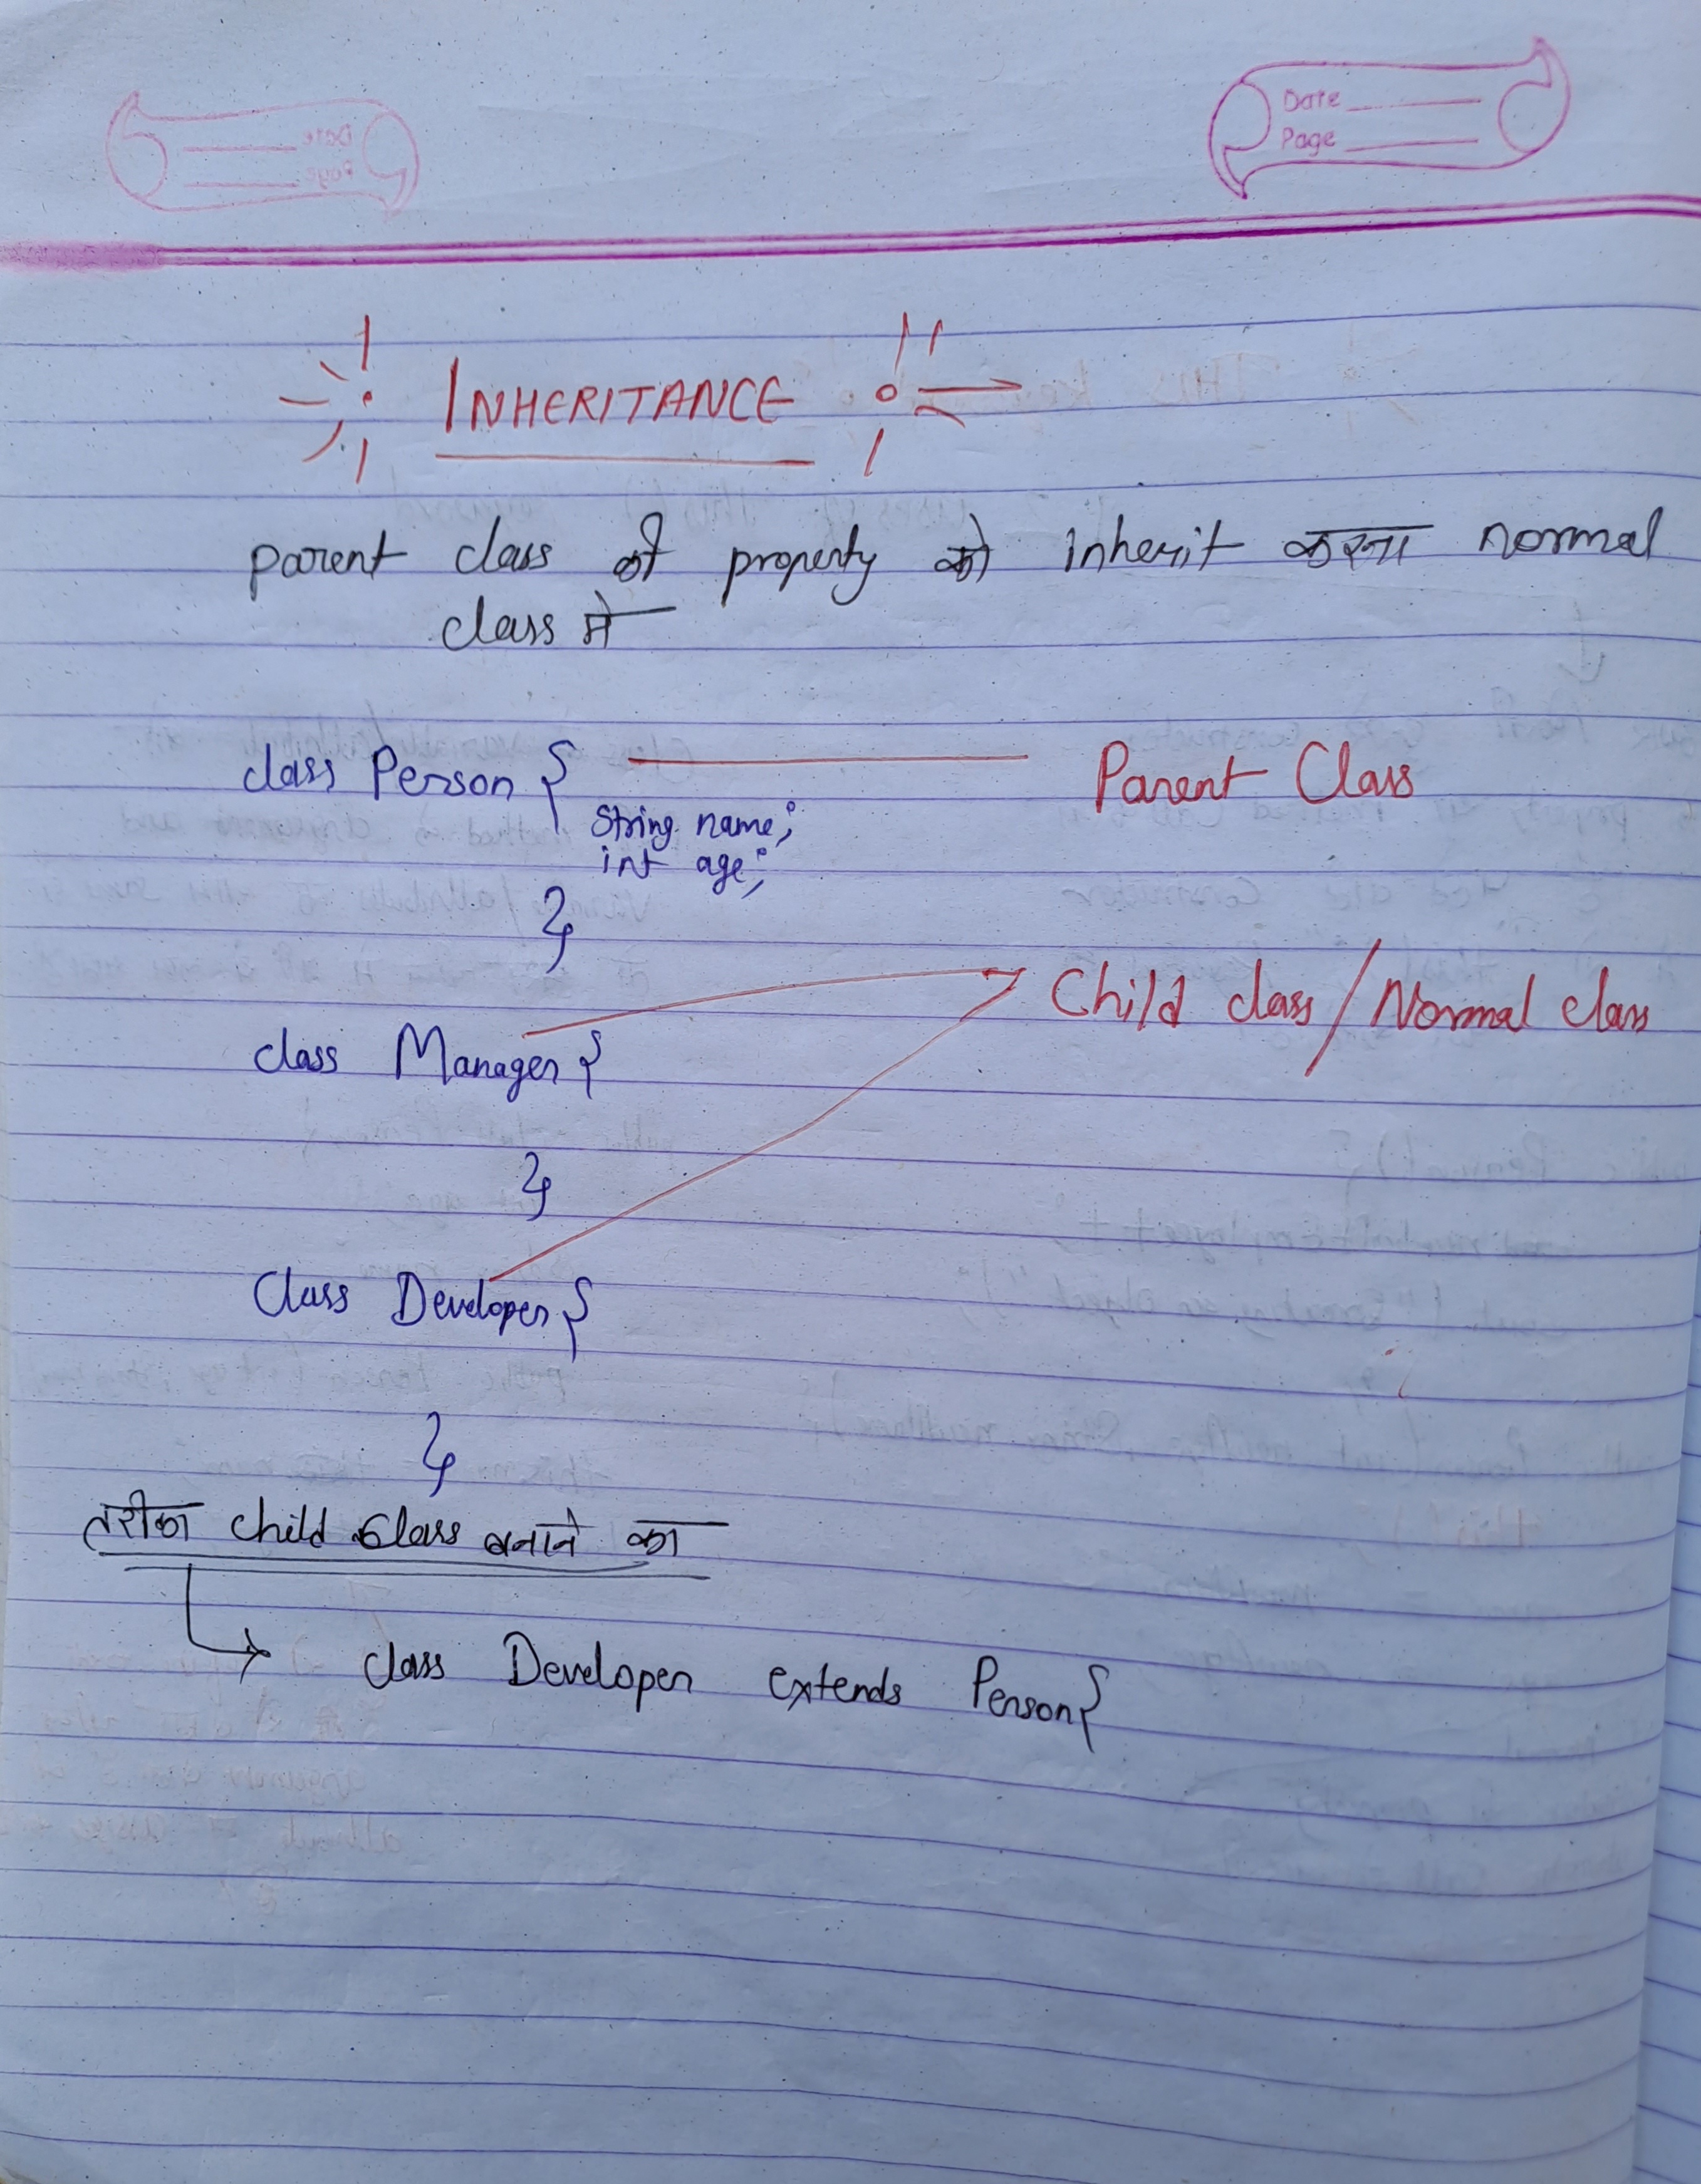 Date
Page
INHERITANCE
parent class की property को inherit करना normal
class में
class Person { Parent Class
String name;
int age;
}
Child class / Normal class
class Manager {
}
Class Developer {
}
तरीका child class बनाने का
class Developer extends Person {